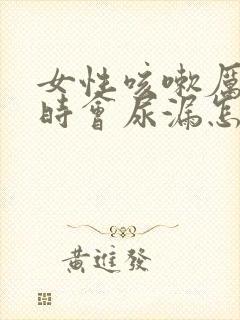 女性咳嗽厲
時會尿漏怎
黃進發